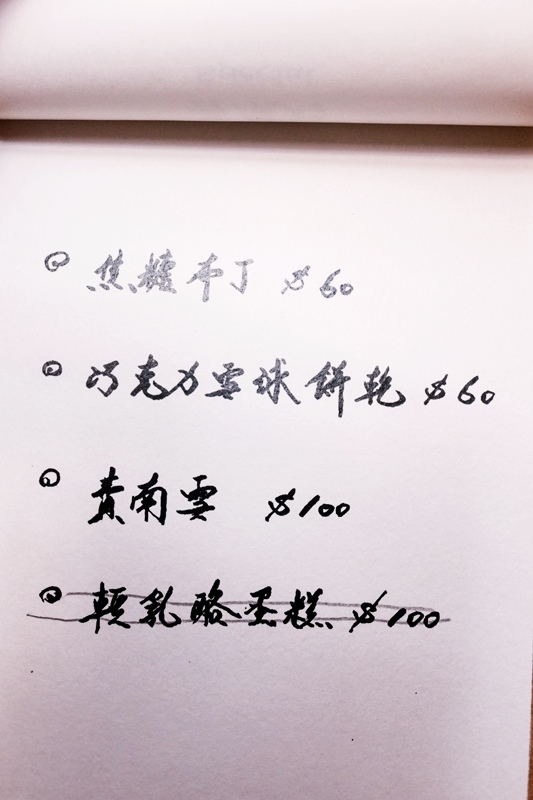 焦糖布丁 $60
巧克力雪球餅乾 $60
費南雪 $100
輕乳酪蛋糕 $100